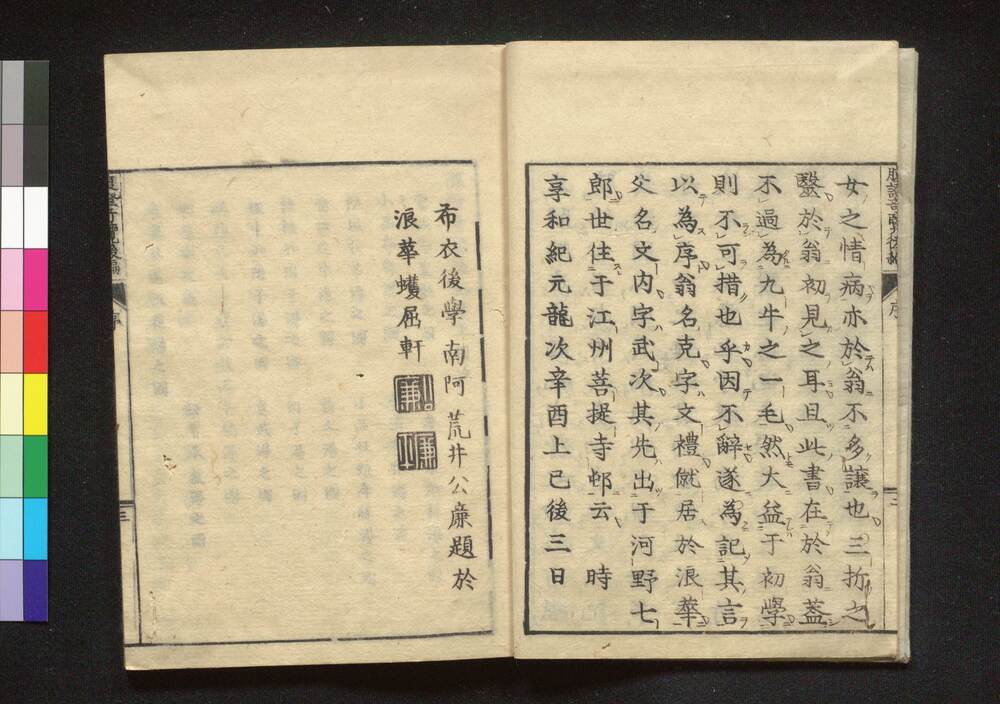 女之情病亦於翁不多讓也三折之
毉於翁初見之耳且此書在於翁葢
不過為九牛之一毛然大益于初學
則不可措也乎因不辭遂為記其言
以為序翁名克字文禮僦居於浪華
父名文內字武次其先出于河野七
郎世住于江州菩提寺邨云 時
享和紀元龍次辛酉上巳後三日
布衣後學 南阿 荒井公廉題於
浪華蠖屈軒
序
三